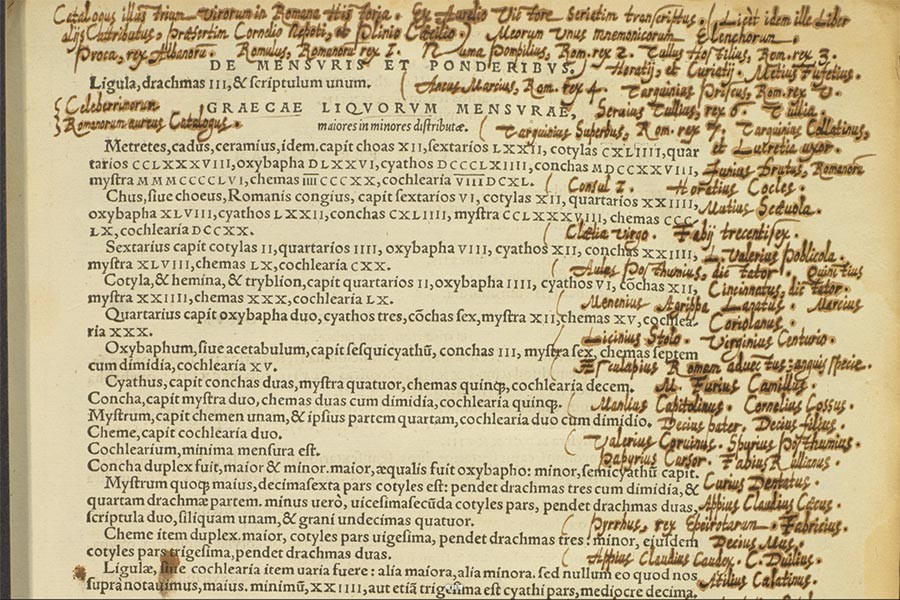 Catalogus illustrium virorum in Romana Historia. Ex Aurelio Victore seriatim transcriptus. (Licèt idem ille liber
alijs attributus, præsertim Cornelio Nepoti, et Plinio Cæcilio.) Meorum unus mnemonicorum Elenchorum.
Proca, rex Albanorū. Romulus, Romanorū rex 1. Numa Pompilius, Rom. rex 2. Tullus Hostilius, Rom. rex 3.
DE MENSVRIS ET PONDERIBVS.
Horatij, et Curiatij. Metius Fufetius.
Ligula, drachmas III, & scriptulum unum.
Ancus Marcius, Rom. rex 4. Tarquinius Priscus, Rom. rex 5.
{Celeberrimorum
Romanorum aureus Catalogus.
GRAECAE LIQVORVM MENSVRAE,
maiores in minores distributæ.
Seruius Tullius, rex 6. Tullia.
Tarquinius Superbus, Rom. rex 7. Tarquinius Collatinus,
et Lucretia uxor.
Metretes, cadus, ceramius, idem. capit choas XII, sextarios LXXII, cotylas CXLIIII, quar
tarios CCLXXXVIII, oxybapha DLXXVI, cyathos DCCCLXIIII, conchas MDCCXXVIII,
mystra MMMCCCCLVI, chemas IIIICCCXX, cochlearia VIIIDCXL.
Chus, siue choeus, Romanis congius, capit sextarios VI, cotylas XII, quartarios XXIIII,
oxybapha XLVIII, cyathos LXXII, conchas CXLIIII, mystra CCLXXXVIII, chemas CCC
LX, cochlearia DCCXX.
Sextarius capit cotylas II, quartarios IIII, oxybapha VIII, cyathos XII, conchas XXIIII,
mystra XLVIII, chemas LX, cochlearia CXX.
Cotyla, & hemina, & tryblion, capit quartarios II, oxybapha IIII, cyathos VI, cōchas XII,
mystra XXIIII, chemas XXX, cochlearia LX.
Quartarius capit oxybapha duo, cyathos tres, cōchas sex, mystra XII, chemas XV, cochlea-
ria XXX.
Oxybaphum, siue acetabulum, capit sesquicyathū, conchas III, mystra sex, chemas septem
cum dimidia, cochlearia XV.
Cyathus, capit conchas duas, mystra quatuor, chemas quinq;, cochlearia decem.
Concha, capit mystra duo, chemas duas cum dimidia, cochlearia quinq;.
Mystrum, capit chemen unam, & ipsius partem quartam, cochlearia duo cum dimidio.
Cheme, capit cochlearia duo.
Cochlearium, minima mensura est.
Concha duplex fuit, maior & minor. maior, æqualis fuit oxybapho: minor, semicyathū capit.
Mystrum quoq; maius, decimasexta pars cotyles est: pendet drachmas tres cum dimidia, &
quartam drachmæ partem. minus uerò, uicesimasecūda cotyles pars, pendet drachmas duas,
scriptula duo, siliquam unam, & grani undecimas quatuor.
Cheme item duplex. maior, cotyles pars uigesima, pendet drachmas tres: minor, eiusdem
cotyles pars trigesima, pendet drachmas duas.
Ligulæ, siue cochlearia item uaria fuere: alia maiora, alia minora. sed nullum eo quod nos
supra notauimus, maius. minimū, XXIIII, aut etiā trigesima est cyathi pars, mediocre decima.
Junius Brutus, Romanorū
Consul 1. Horatius Cocles.
Mutius Scæuola.
Clælia virgo. Fabij trecenti sex.
L. Valerius Poblicola.
Aulus Posthumius, dictator. Quintius
Cincinnatus, dictator.
Menenius Agrippa Lanatus. Marcius
Coriolanus.
Licinius Stolo. Virginius Centurio.
Æsculapius Romam aduectus: anguis specie.
M. Furius Camillus.
Manlius Capitolinus. Cornelius Cossus.
Decius pater. Decius filius.
Valerius Coruinus. Spurius Posthumius.
Papyrius Cursor. Fabius Rullianus.
Curius Dentatus.
Appius Claudius Cæcus.
Pyrrhus, rex Epeirotarum. Fabricius.
Decius Mus.
Appius Claudius Caudex. C. Duilius.
Atilius Calatinus.